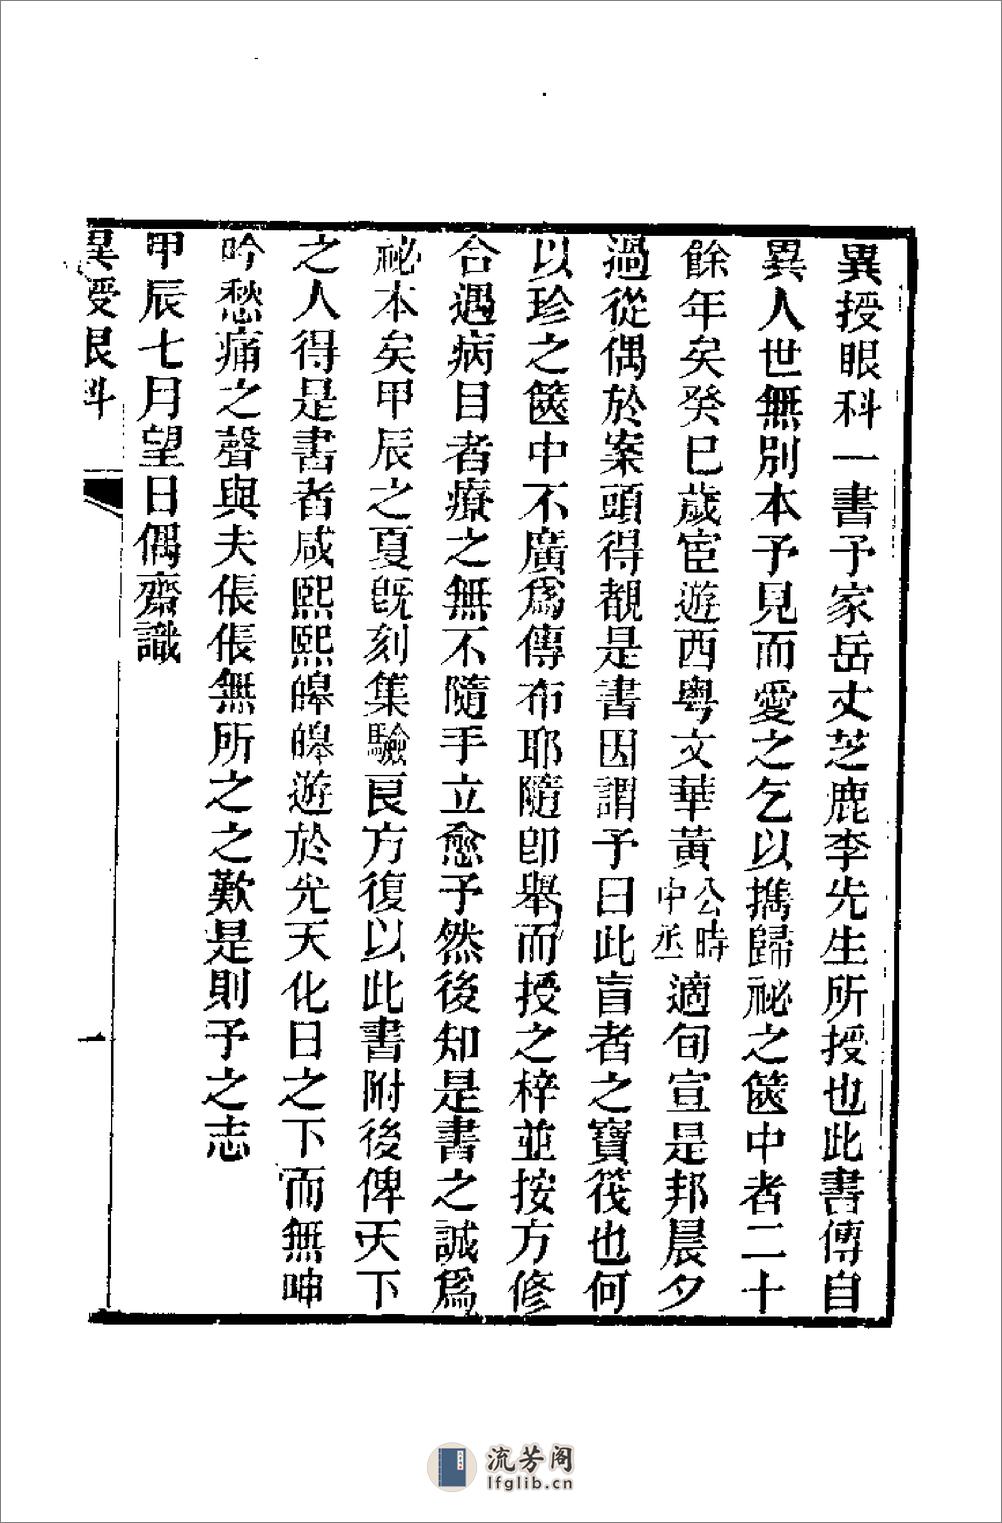 異授眼科一書予家岳丈芝鹿李先生所授也此書傳自
異人世無別本予見而愛之乞以攜歸祕之篋中者二十
餘年矣癸巳歲宦遊西粵文華黃公時中丞適旬宣是邦晨夕
過從偶於案頭得覩是書因謂予曰此盲者之寶筏也何
以珍之篋中不廣爲傳布耶隨卽舉而授之梓並按方修
合遇病目者療之無不隨手立愈予然後知是書之誠爲
祕本矣甲辰之夏旣刻集驗良方復以此書附後俾天下
之人得是書者咸熙熙皞皞遊於光天化日之下而無呻
吟愁痛之聲與夫倀倀無所之之歎是則予之志
甲辰七月望日偶齋識
異授眼科
一
流芳阁
lfglib.cn